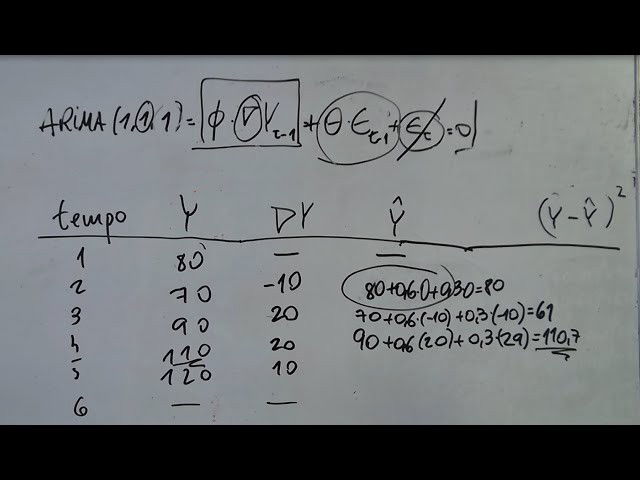 ARIMA (1,1,1) = |ϕ · ∇Y_{t-1} + θ · ϵ_{t-1} + ϵ_t = 0|
tempo Y DY Ŷ (Y-Ŷ)²
1 80 — —
2 70 -10 80+0,6·0+0,30=80
3 90 20 70+0,6·(-10)+0,3·(-10)=61
4 110 20 90+0,6(20)+0,3(29)=110,7
5 120 10
6 — —